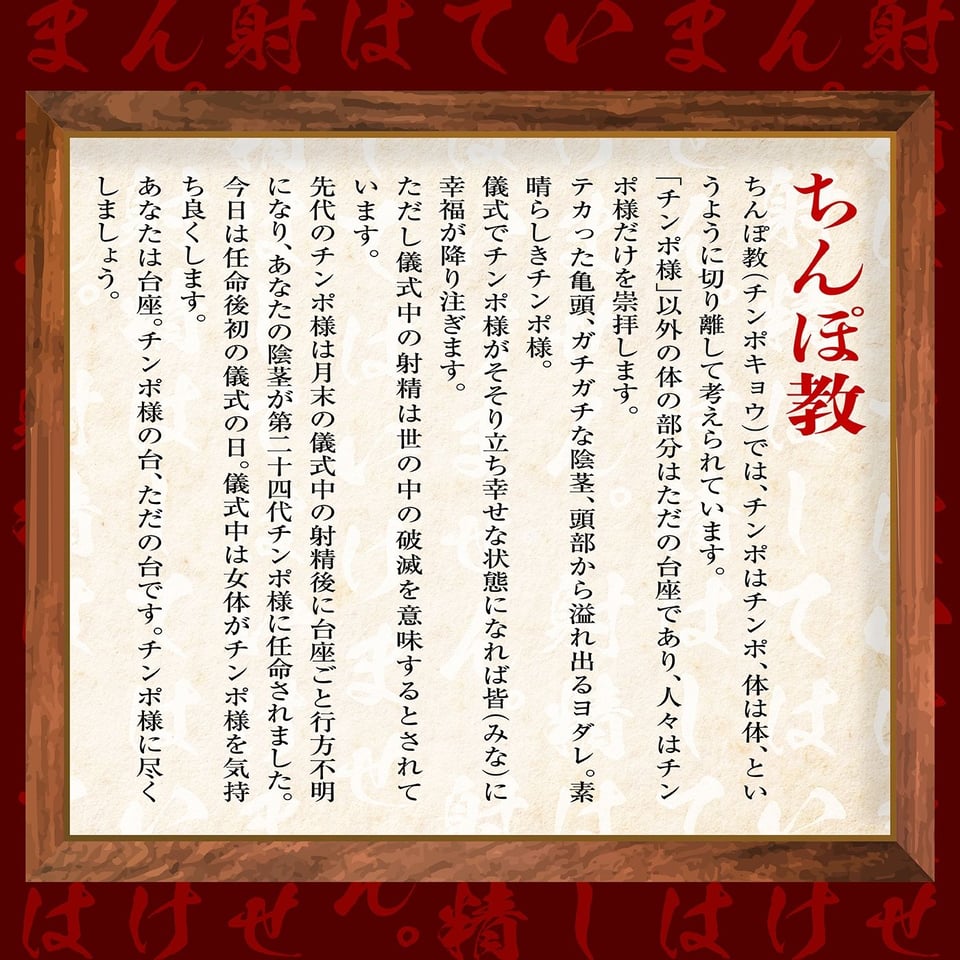 ちんぽ教
ちんぽ教(チンポキョウ)では、チンポはチンポ、体は体、とい
うように切り離して考えられています。
「チンポ様」以外の体の部分はただの台座であり、人々はチン
ポ様だけを崇拝します。
テカった亀頭、ガチガチな陰茎、頭部から溢れ出るヨダレ。素
晴らしきチンポ様。
儀式でチンポ様がそそり立ち幸せな状態になれば皆(みな)に
幸福が降り注ぎます。
ただし儀式中の射精は世の中の破滅を意味するとされて
います。
先代のチンポ様は月末の儀式中の射精後に台座ごと行方不明
になり、あなたの陰茎が第二十四代チンポ様に任命されました。
今日は任命後初の儀式の日。儀式中は女体がチンポ様を気持
ち良くします。
あなたは台座。チンポ様の台、ただの台です。チンポ様に尽く
しましょう。
まん射はていまん射
はけせん。精しはけせ